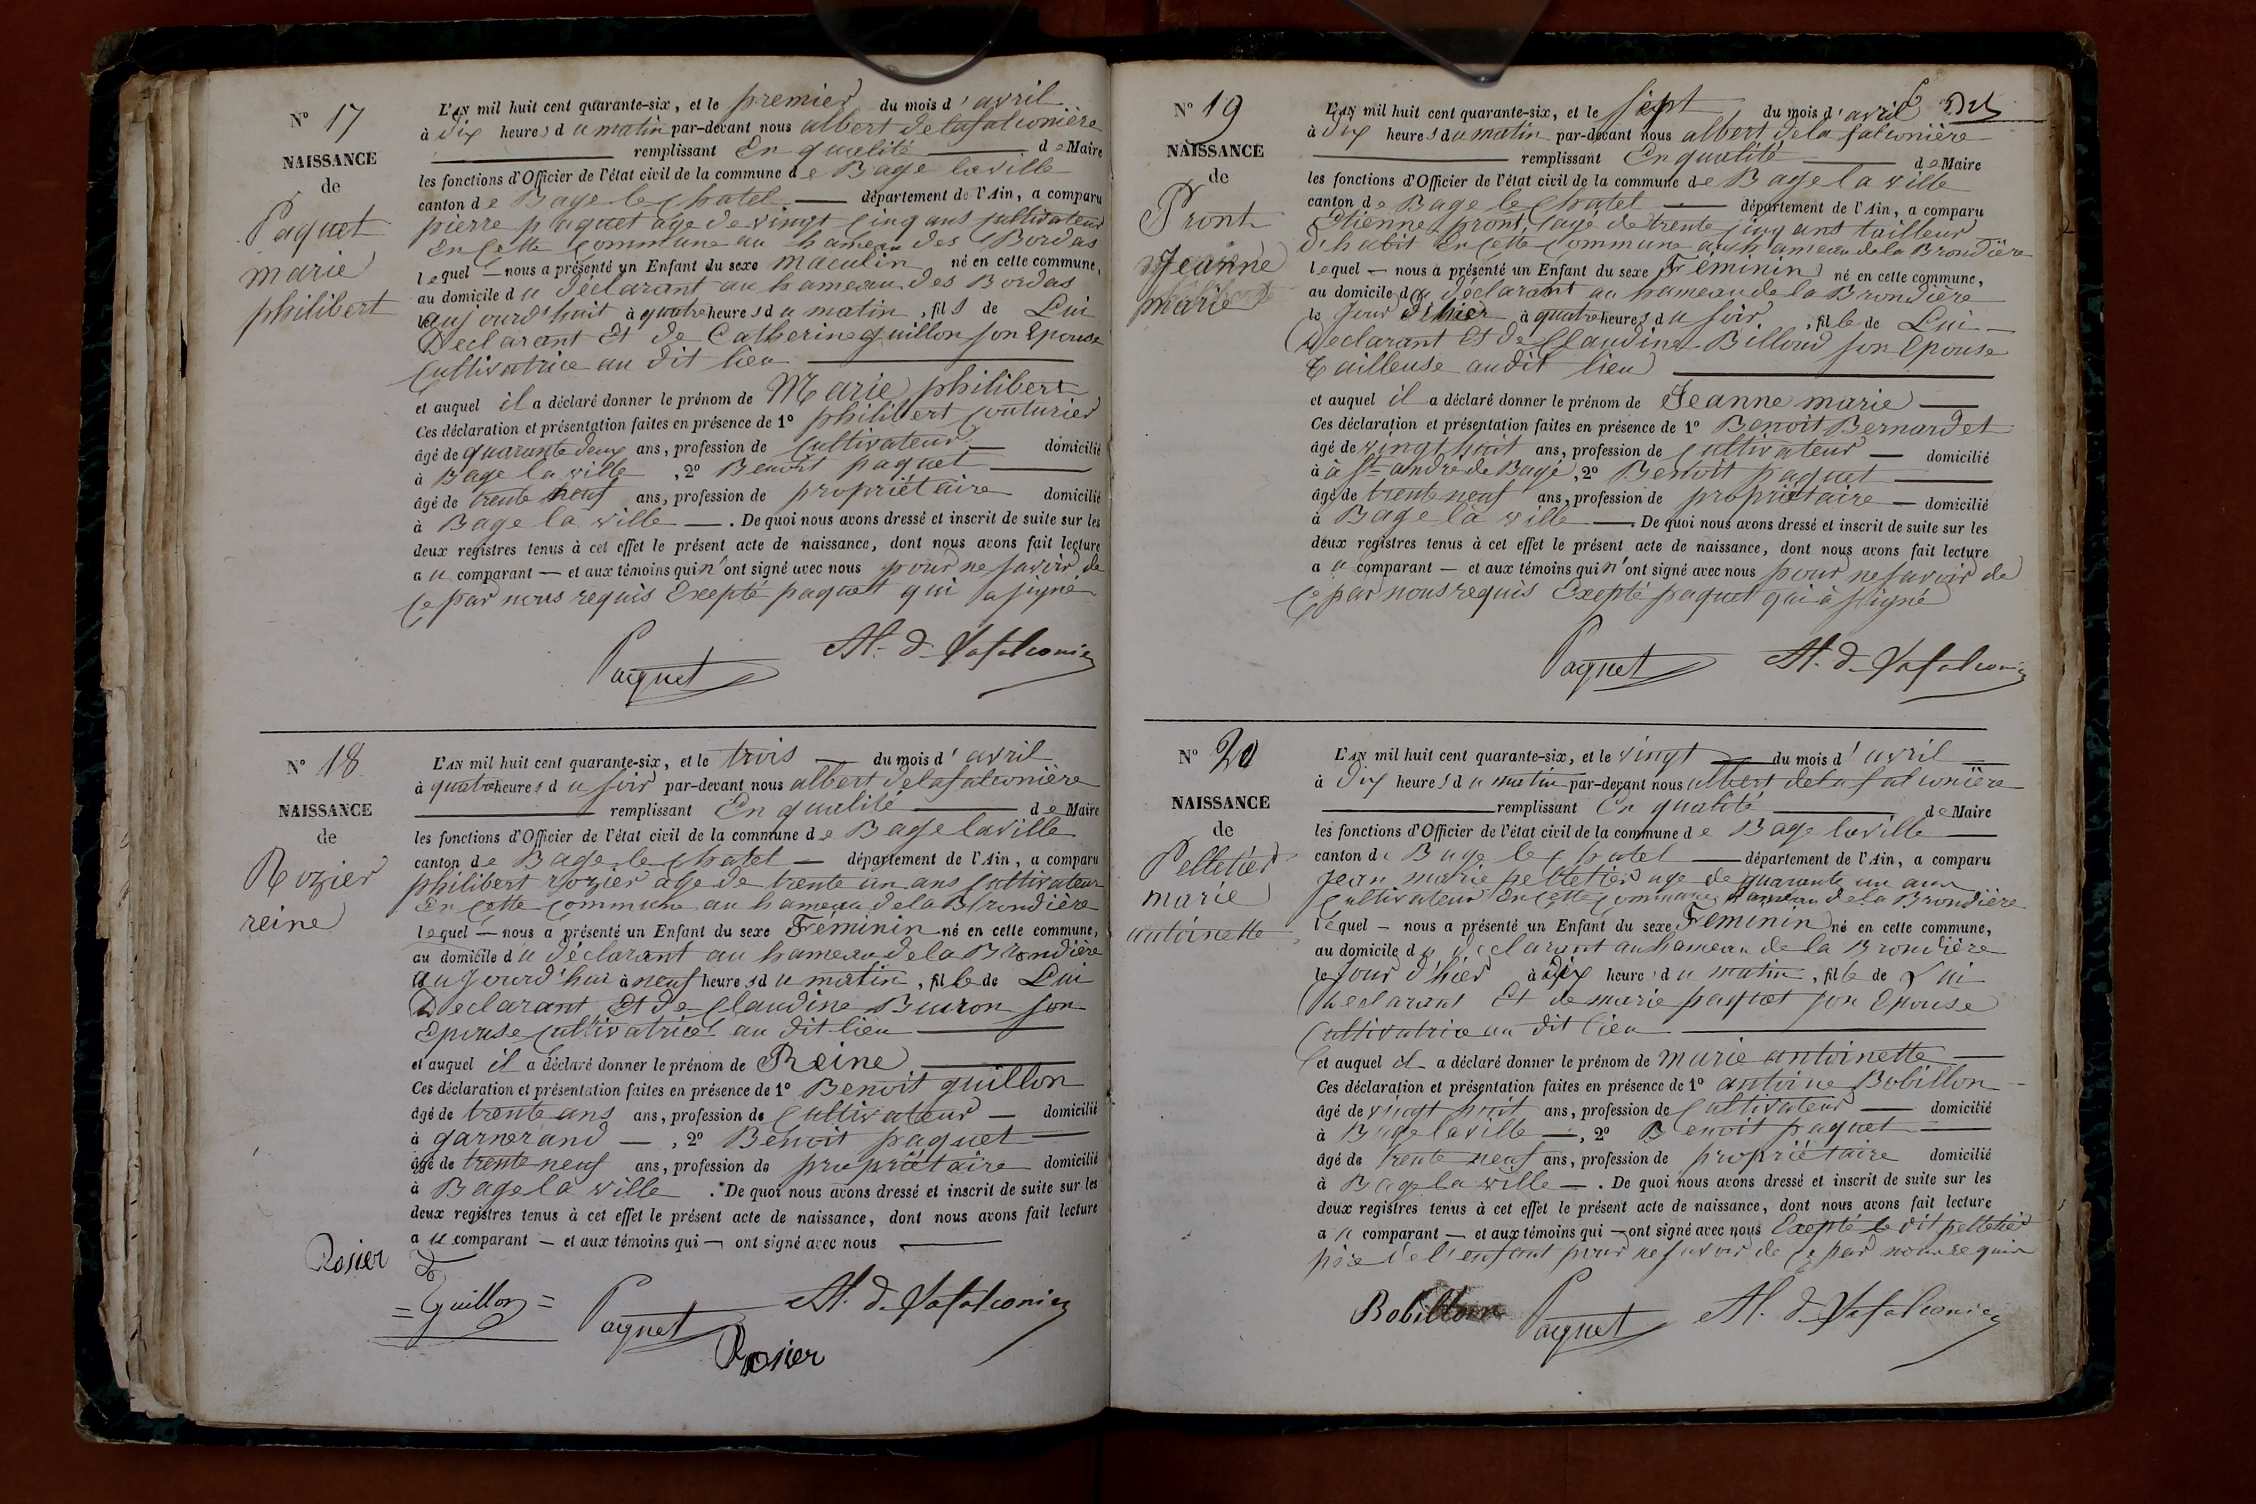 N° 17
NAISSANCE
de
Paquet
marie
philibert
L'AN mil huit cent quarante-six, et le premier du mois d'avril
à dix heures du matin par-devant nous albert delafalconière
remplissant En qualité de Maire
les fonctions d'Officier de l'état civil de la commune de Bage laville
canton de Bage le chatel — département de l'Ain, a comparu
pierre paquet age de vingt cinq ans cultivateur
en cette commune au hameau des Bordas
lequel — nous a présenté un Enfant du sexe maculin né en cette commune,
au domicile du déclarant au hameau des Bordas
aujourd'huit à quatre heures du matin, fils de Lui
Declarant Et de Catherine guillon son Epouse
cultivatrice au dit lieu
et auquel il a déclaré donner le prénom de Marie philibert
Ces déclaration et présentation faites en présence de 1° philibert couturier
âgé de quarante deux ans, profession de cultivateur — domicilié
à Bage la ville, 2° Benoit paquet
âgé de trente neuf ans, profession de propriétaire domicilié
à Bage la ville —. De quoi nous avons dressé et inscrit de suite sur les
deux registres tenus à cet effet le présent acte de naissance, dont nous avons fait lecture
au comparant — et aux témoins qui n'ont signé avec nous pour ne savoir de
ce par nous requis Exepté paquet qui a signé
Paquet Al. d. Lafalconier
N° 18
NAISSANCE
de
Rozier
reine
L'AN mil huit cent quarante-six, et le trois — du mois d'avril
à quatre heures du soir par-devant nous albert delafalconière
remplissant En qualité de Maire
les fonctions d'Officier de l'état civil de la commune de Bage laville
canton de Bage le chatel — département de l'Ain, a comparu
philibert rozier age de trente un ans cultivateur
en cette commune au hameau dela Brondière
lequel — nous a présenté un Enfant du sexe Féminin né en cette commune,
au domicile du déclarant au hameau dela Brondière
aujourd'hui à neuf heures du matin, fille de Lui
Declarant Et de Claudine Buiron son
Epouse cultivatrice au dit lieu
et auquel il a déclaré donner le prénom de Reine
Ces déclaration et présentation faites en présence de 1° Benoit guillon
âgé de trente ans ans, profession de cultivateur — domicilié
à garnerand —, 2° Benoit paquet
âgé de trente neuf ans, profession de propriétaire domicilié
à Bage la ville. De quoi nous avons dressé et inscrit de suite sur les
deux registres tenus à cet effet le présent acte de naissance, dont nous avons fait lecture
au comparant — et aux témoins qui — ont signé avec nous
Rosier
= Guillon = Paquet Al. d. Lafalconier
Rosier
N° 19
NAISSANCE
de
Pront
Jeanne
marie
L'AN mil huit cent quarante-six, et le sept du mois d'avril
à dix heures du matin par-devant nous albert dela falconière
remplissant En qualité de Maire
les fonctions d'Officier de l'état civil de la commune de Bage la ville
canton de Bage le chatel — département de l'Ain, a comparu
Etienne pront agé de trente cinq ans tailleur
d'habit en cette commune au hameau dela Brondière
lequel — nous a présenté un Enfant du sexe Féminin né en cette commune,
au domicile du déclarant au hameau de la Brondière
le jour d'hier à quatre heures du soir, fille de Lui
Declarant Et de Claudine Billoud son Epouse
Tailleuse audit lieu
et auquel il a déclaré donner le prénom de Jeanne marie
Ces déclaration et présentation faites en présence de 1° Benoit Bernardet
âgé de vingt huit ans, profession de cultivateur — domicilié
à à St andre de Bagé, 2° Benoit paquet
âgé de trente neuf ans, profession de propriétaire — domicilié
à Bage la ville —. De quoi nous avons dressé et inscrit de suite sur les
deux registres tenus à cet effet le présent acte de naissance, dont nous avons fait lecture
au comparant — et aux témoins qui n'ont signé avec nous pour ne savoir de
ce par nous requis Exepté paquet qui à signé
Paquet Al. d. Lafalconier
N° 20
NAISSANCE
de
Pelletier
marie
antoinette
L'AN mil huit cent quarante-six, et le vingt du mois d'avril
à dix heures du matin par-devant nous albert dela falconière
remplissant En qualité de Maire
les fonctions d'Officier de l'état civil de la commune de Bage laville
canton de Bage le chatel — département de l'Ain, a comparu
jean marie pelletier age de quarante un ans
cultivateur en cette commune hameau dela Brondière
lequel — nous a présenté un Enfant du sexe Feminin né en cette commune,
au domicile du declarant au hameau de la Brondière
le jour d'hier à dix heures du matin, fille de Lui
Declarant Et de marie paquet son Epouse
cultivatrice au dit lieu
et auquel il a déclaré donner le prénom de marie antoinette
Ces déclaration et présentation faites en présence de 1° antoine Bobillon
âgé de vingt huit ans, profession de cultivateur — domicilié
à Bage laville —, 2° Benoit paquet
âgé de trente neuf ans, profession de propriétaire domicilié
à Bage la ville —. De quoi nous avons dressé et inscrit de suite sur les
deux registres tenus à cet effet le présent acte de naissance, dont nous avons fait lecture
au comparant — et aux témoins qui — ont signé avec nous Exepté le dit pelletier
père de l'enfant pour ne savoir de ce par nous requis
Bobillon Paquet Al. d. Lafalconier